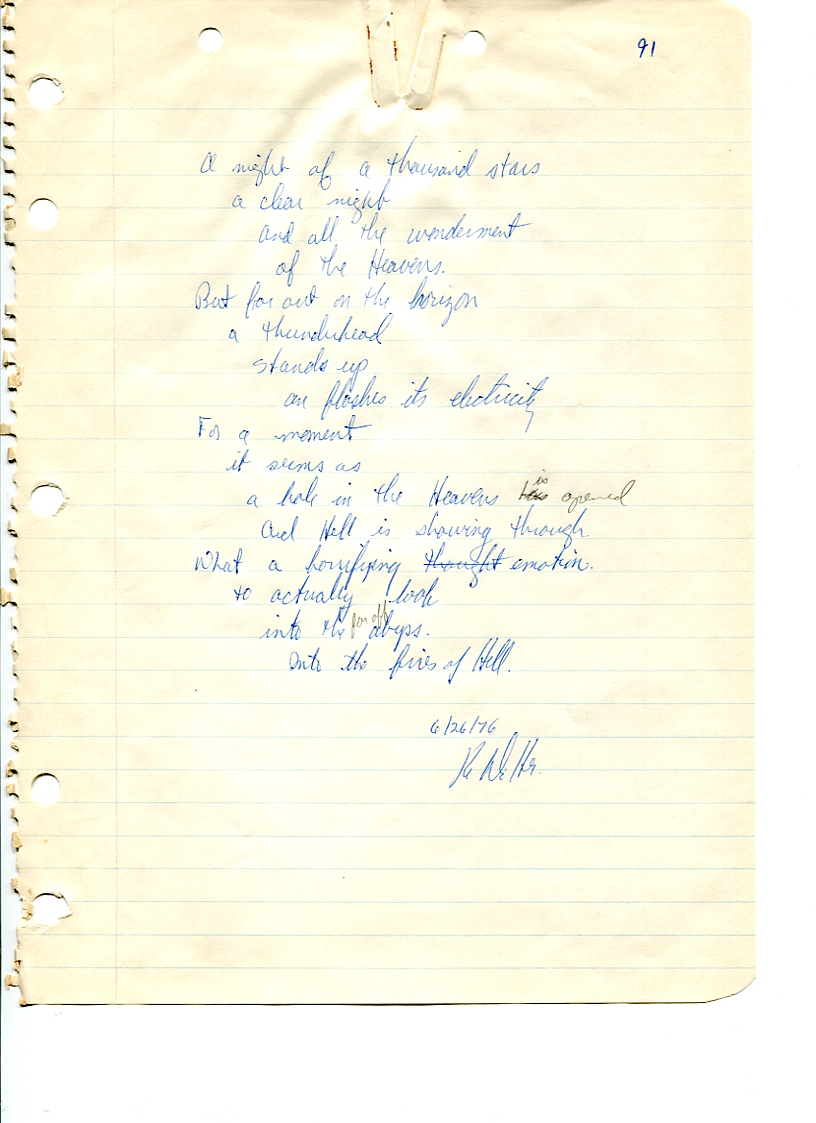 91
A night of a thousand stars
a clear night
and all the wonderment
of the Heavens.
But far out on the horizon
a thunderhead
stands up
an flashes its electricity
For a moment
it seems as
a hole in the Heavens has is opened
And Hell is showing through
What a horrifying thought emotion.
to actually look
into the far off abyss.
Onto the fires of Hell.
6/26/76